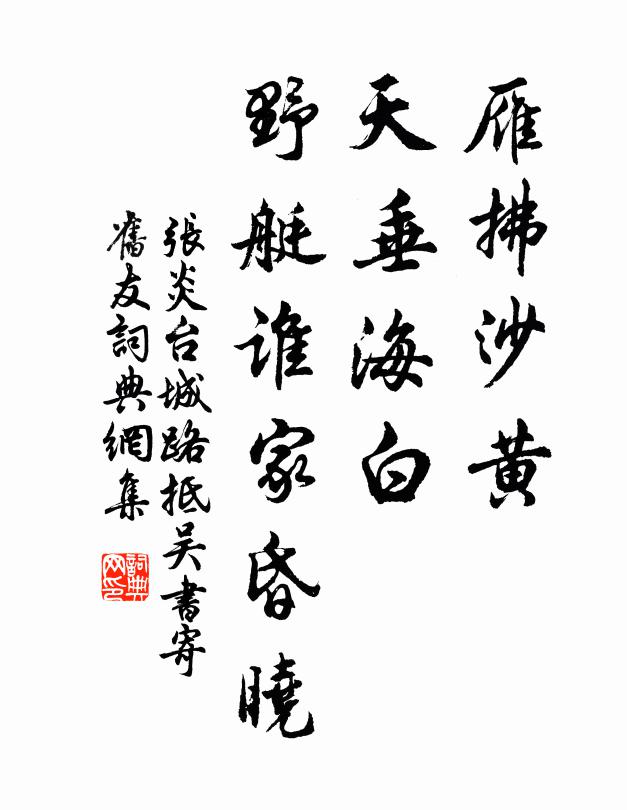 雁拂沙黄
天垂海白
野艇谁家昏曉
張炎台城路抵吴書寄
舊友詞典網集
詞典网印